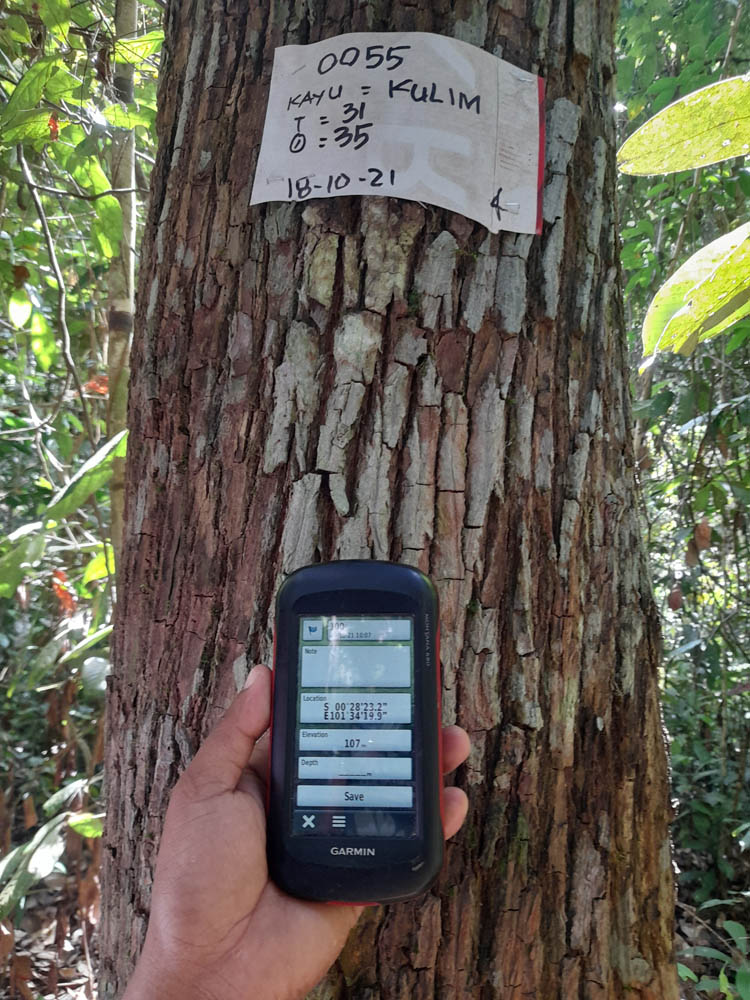 0055
KAYU = KULIM
T = 31
Ø = 35
18-10-21
300
21 10:07
Note
Location
S 00°28'23.2"
E101°34'19.9"
Elevation
107 m
Depth
_____ m
Save
GARMIN
MONTANA 680